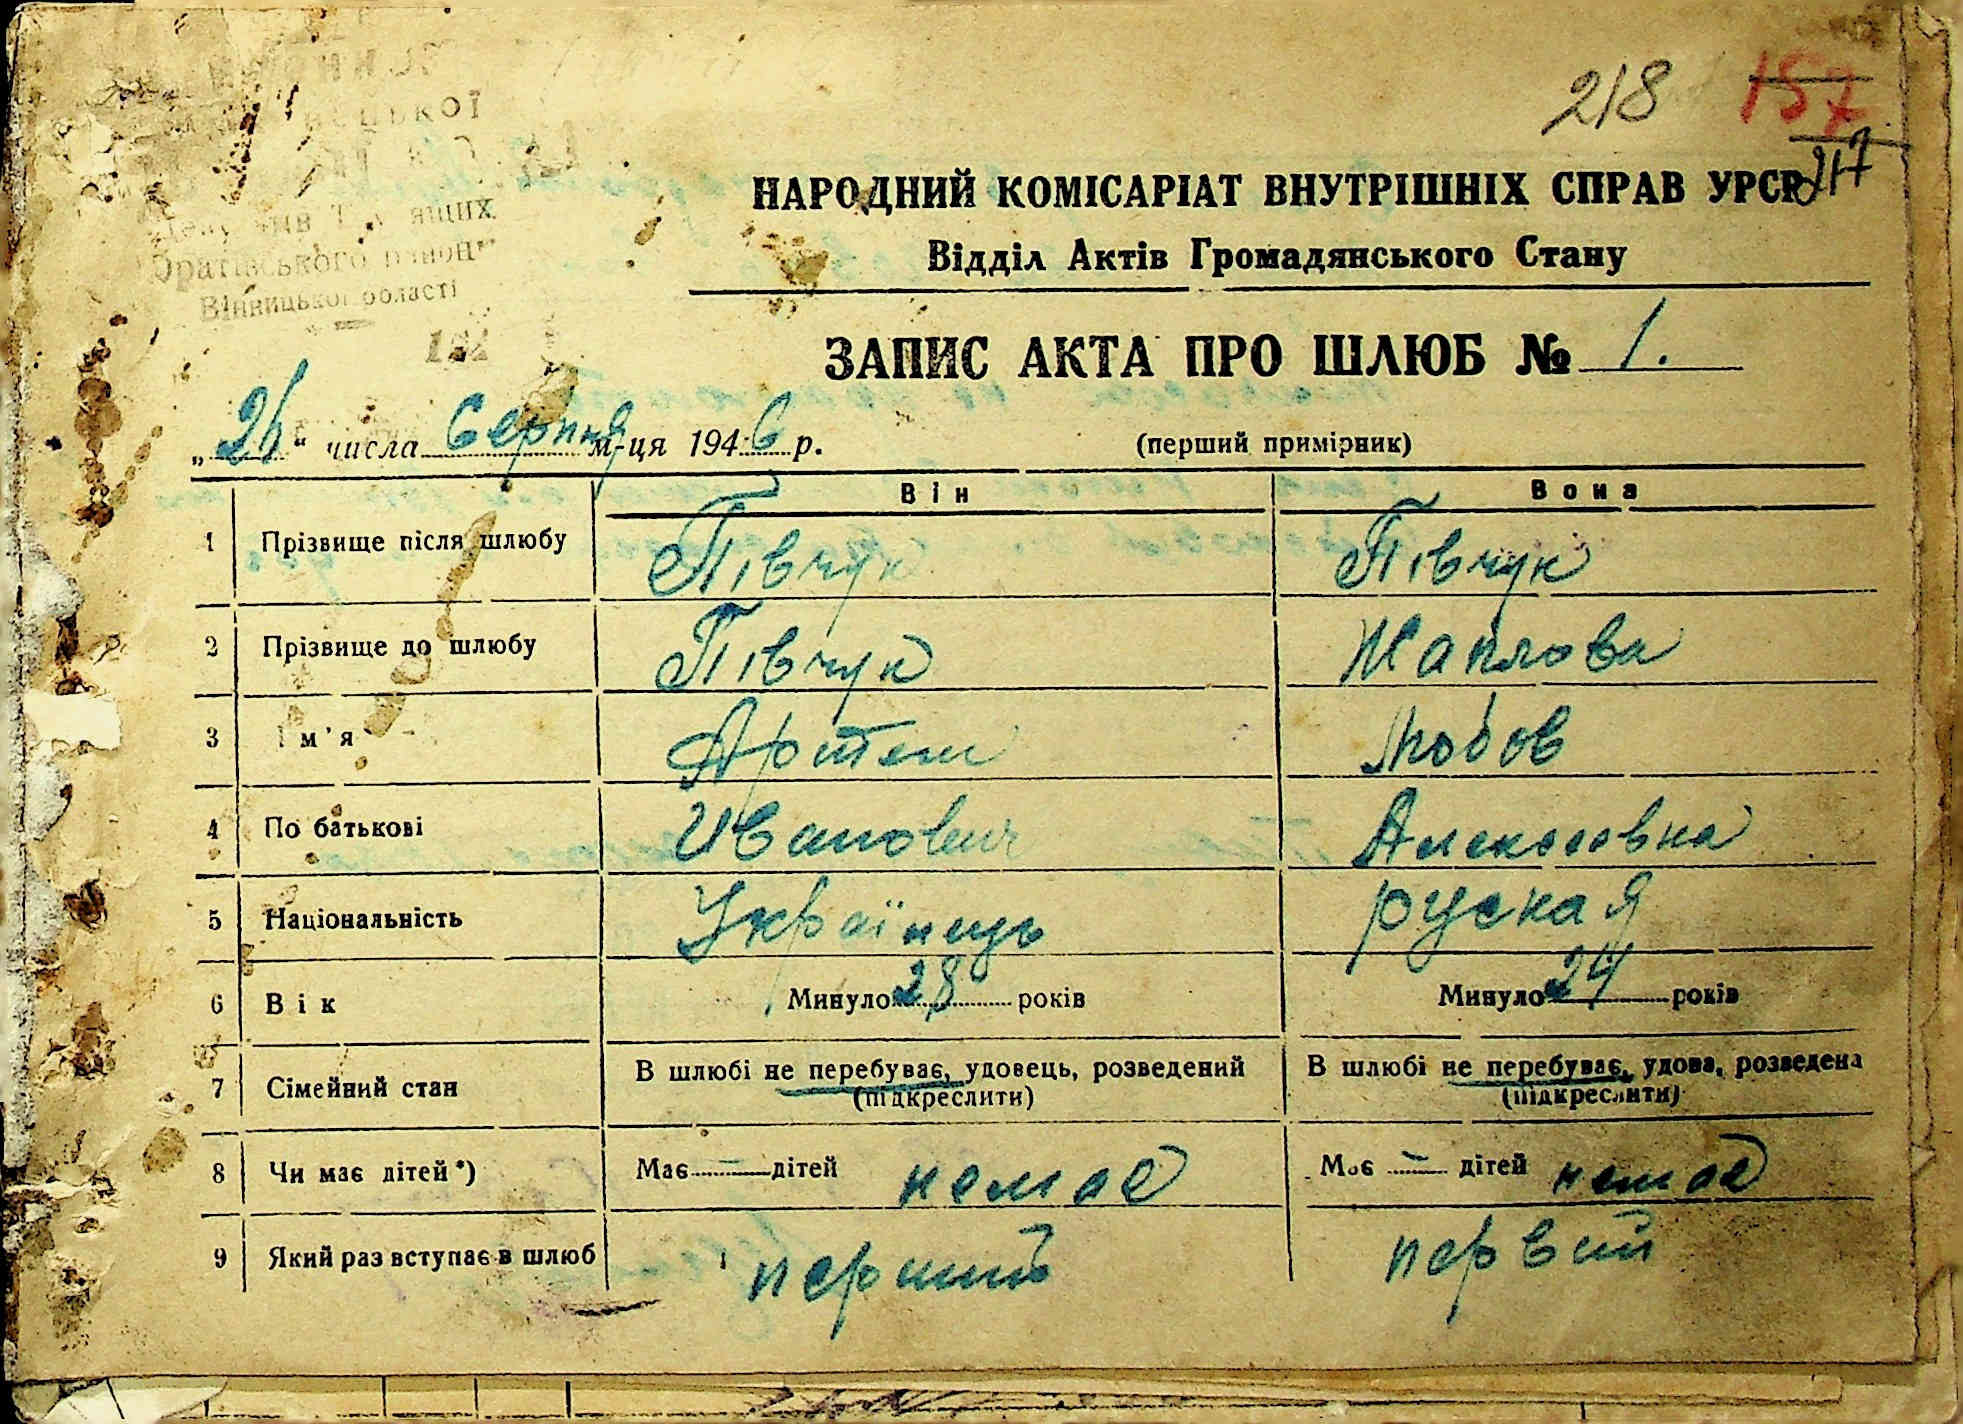 218 157
217
НАРОДНИЙ КОМІСАРІАТ ВНУТРІШНІХ СПРАВ УРСР
Відділ Актів Громадянського Стану
Вінницької області
ЗАПИС АКТА ПРО ШЛЮБ № 1.
„26“ числа Серпня м-ця 1946 р. (перший примірник)
Він Вона
1 Прізвище після шлюбу Півчук Півчук
2 Прізвище до шлюбу Півчук Жаплова
3 Ім'я Артем Любов
4 По батькові Иванович Алексеевна
5 Національність Українець руская
6 Вік Минуло 28 років Минуло 24 років
7 Сімейний стан В шлюбі не перебуває, удовець, розведений В шлюбі не перебуває, удова, розведена
(підкреслити) (підкреслити)
8 Чи має дітей*) Має — дітей немає Має — дітей немає
9 Який раз вступає в шлюб перший первий